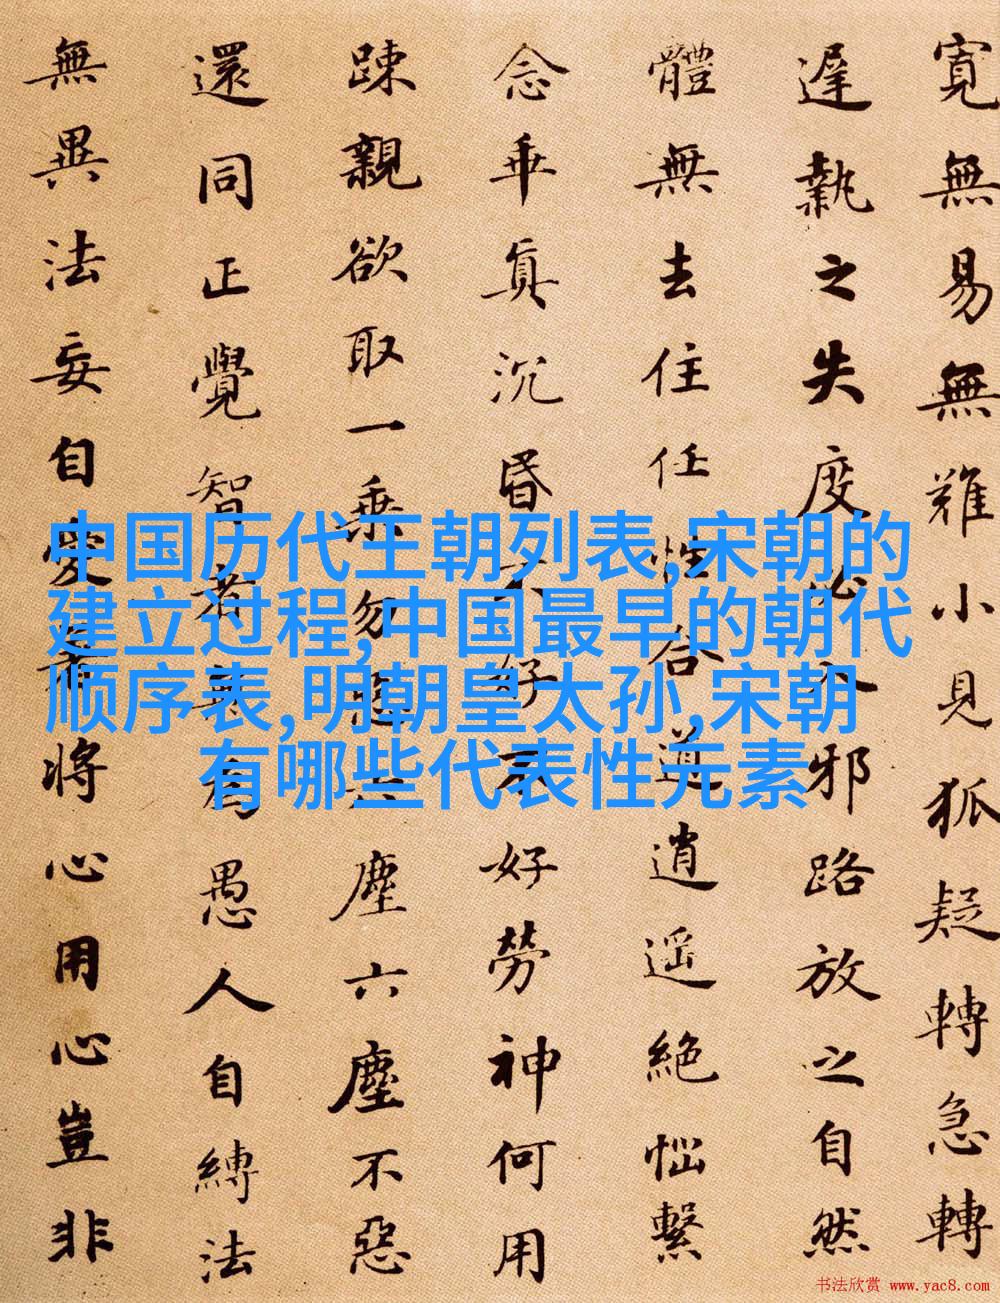 寬無易無難小見狐疑轉急轉
遲執之失度必入邪路放之自然
體無去住任性合道逍遥絶惱繫
念乖真沉昏不好不好勞神何用
踈親欲取一乘勿惡六塵六塵不惡
還同正覺智者無為愚人自縛法
無異法妄自愛著將心用心豈非
中国历代王朝列表,宋朝的
建立过程,中国最早的朝代
顺序表,明朝皇太孙,宋朝
有哪些代表性元素
书法欣赏 www.yac8.com